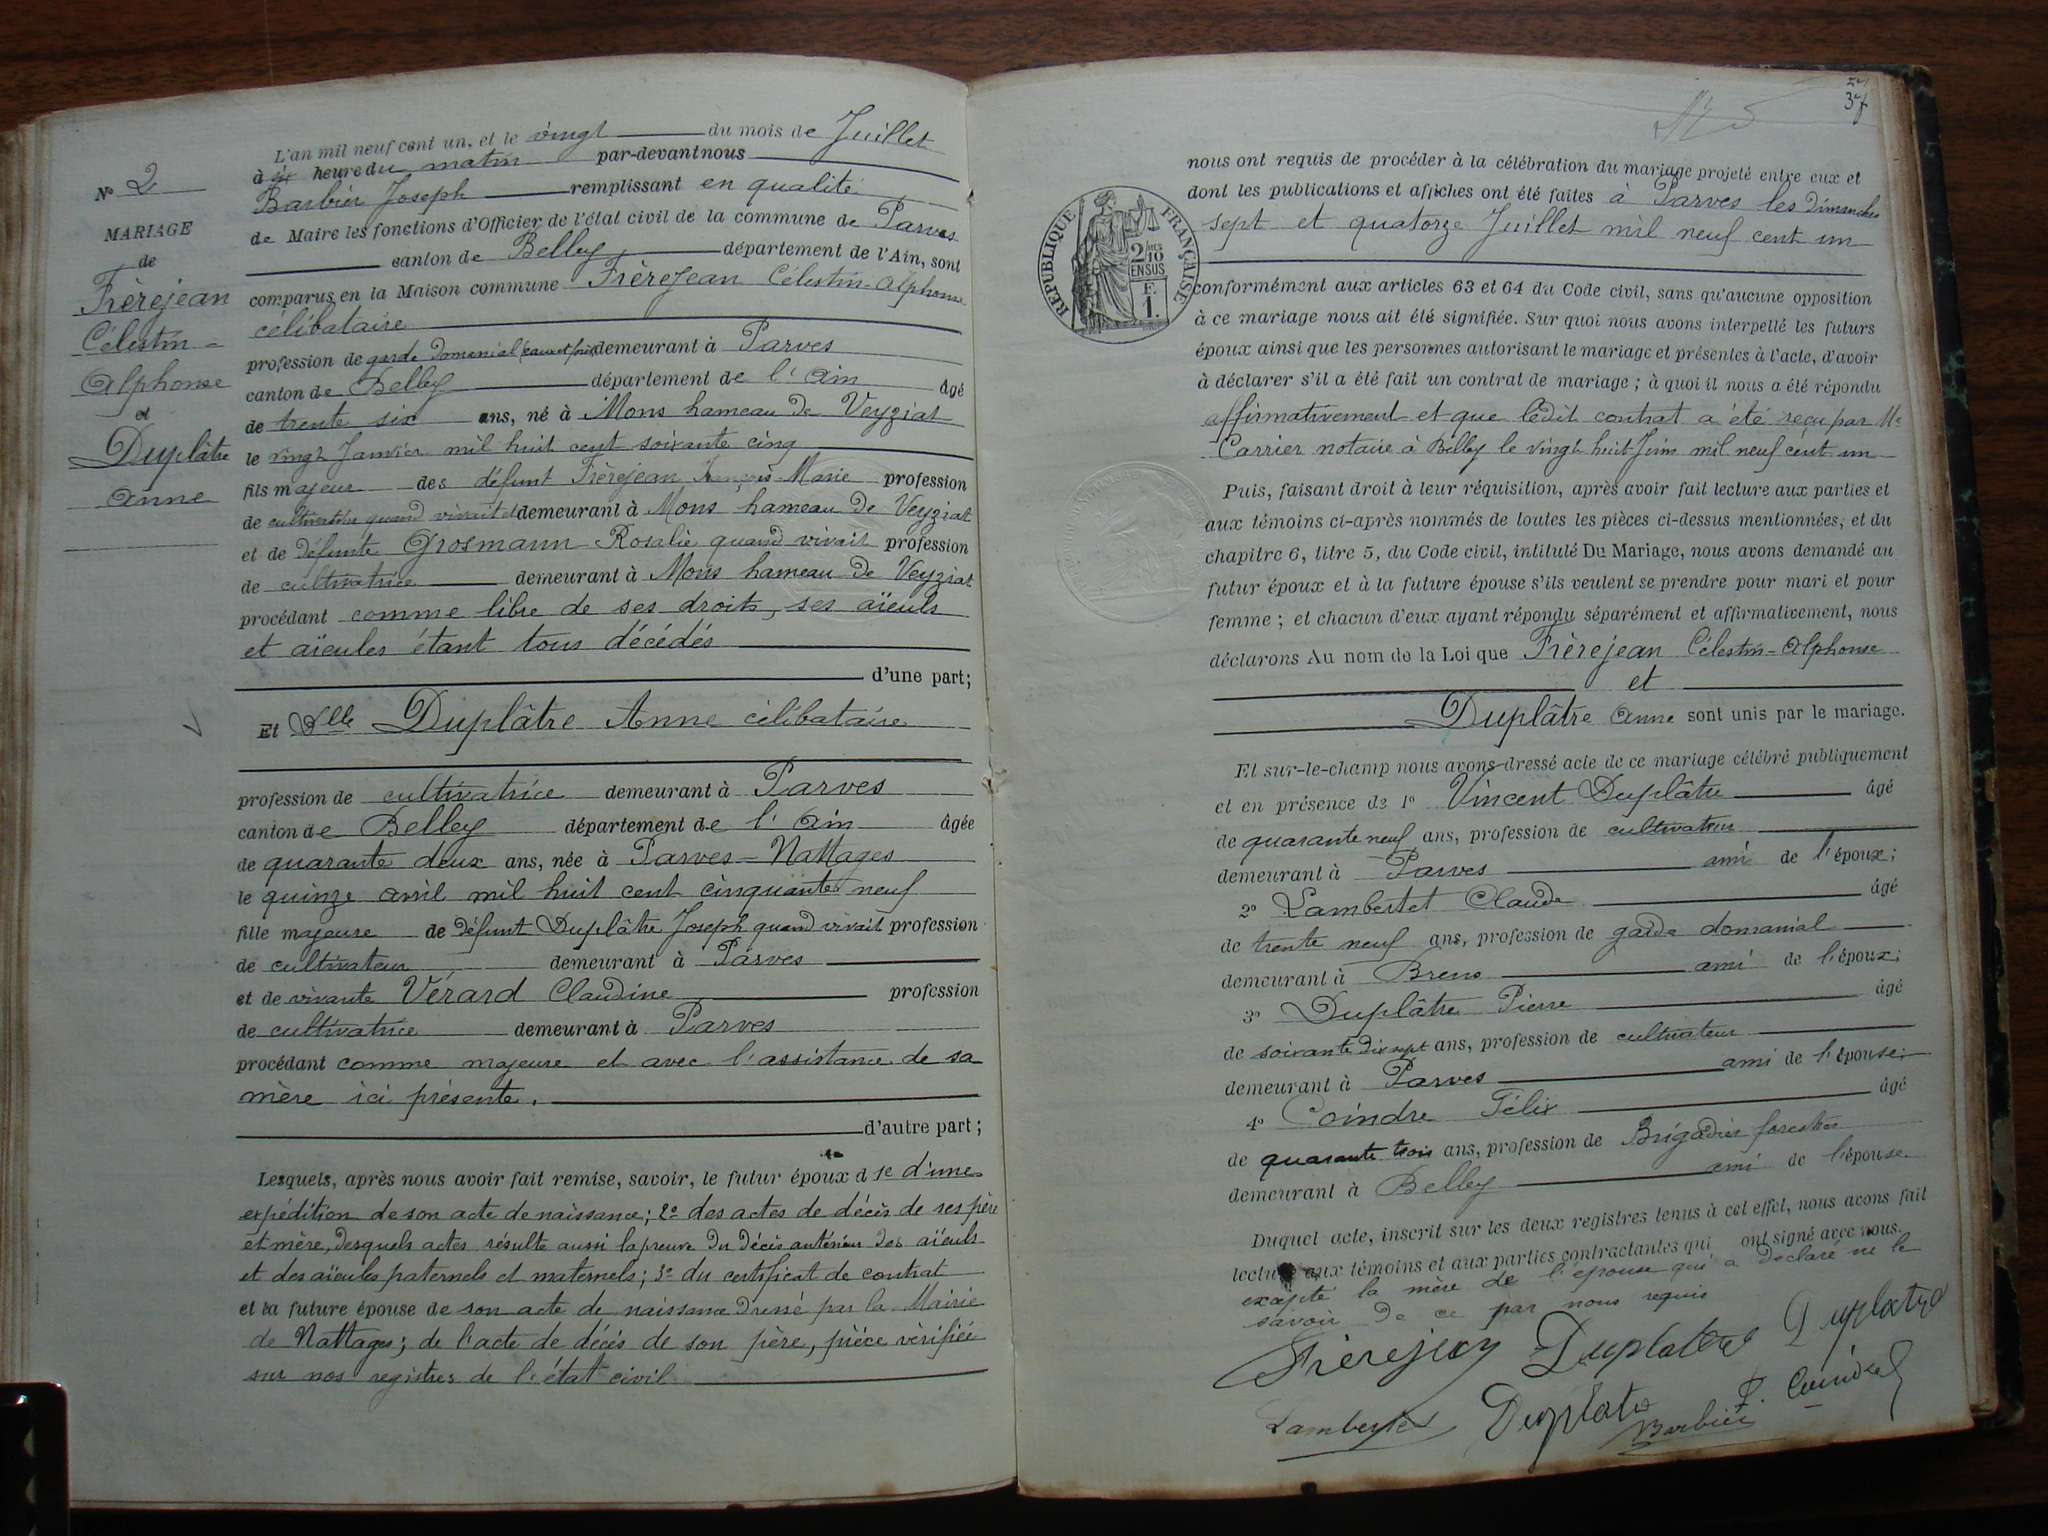 L'an mil neuf cent un, et le vingt du mois de Juillet
à six heure du matin par-devant nous
Barbier Joseph remplissant en qualité
de Maire les fonctions d'Officier de l'état civil de la commune de Parves
canton de Belley département de l'Ain, sont
comparus en la Maison commune Frèrejean Célestin-Alphonse
célibataire
profession de garde domanial demeurant à Parves
canton de Belley département de l'Ain âgé
de trente six ans, né à Mons hameau de Veyziat
le vingt Janvier mil huit cent soixante cinq
fils majeur des défunt Frèrejean François-Marie profession
de cultivateur quand vivait et demeurant à Mons hameau de Veyziat
et de défunte Grosmann Rosalie quand vivait profession
de cultivatrice demeurant à Mons hameau de Veyziat
procédant comme libre de ses droits, ses aïeuls
et aïeules étant tous décédés
d'une part;
Et Dlle Duplâtre Anne célibataire
profession de cultivatrice demeurant à Parves
canton de Belley département de l'Ain âgée
de quarante deux ans, née à Parves-Nattages
le quinze avril mil huit cent cinquante neuf
fille majeure de défunt Duplâtre Joseph quand vivait profession
de cultivateur demeurant à Parves
et de vivante Vérard Claudine profession
de cultivatrice demeurant à Parves
procédant comme majeure et avec l'assistance de sa
mère ici présente.
d'autre part;
Lesquels, après nous avoir fait remise, savoir, le futur époux d 1e d'une
expédition de son acte de naissance; 2o des actes de décès de ses père
et mère, desquels actes résulte aussi la preuve du décès antérieur des aïeuls
et des aïeules paternels et maternels; 3o du certificat de contrat
et la future épouse de son acte de naissance dressé par la Mairie
de Nattages; de l'acte de décès de son père, pièce vérifiée
sur nos registres de l'état civil
No 2
MARIAGE
de
Frèrejean
Célestin-
Alphonse
et
Duplâtre
Anne
37
nous ont requis de procéder à la célébration du mariage projeté entre eux et
dont les publications et affiches ont été faites à Parves les Dimanches
sept et quatorze Juillet mil neuf cent un
conformément aux articles 63 et 64 du Code civil, sans qu'aucune opposition
à ce mariage nous ait été signifiée. Sur quoi nous avons interpellé les futurs
époux ainsi que les personnes autorisant le mariage et présentes à l'acte, d'avoir
à déclarer s'il a été fait un contrat de mariage; à quoi il nous a été répondu
affirmativement et que ledit contrat a été reçu par Me
Carrier notaire à Belley le vingt huit Juin mil neuf cent un
Puis, faisant droit à leur réquisition, après avoir fait lecture aux parties et
aux témoins ci-après nommés de toutes les pièces ci-dessus mentionnées, et du
chapitre 6, titre 5, du Code civil, intitulé Du Mariage, nous avons demandé au
futur époux et à la future épouse s'ils veulent se prendre pour mari et pour
femme; et chacun d'eux ayant répondu séparément et affirmativement, nous
déclarons Au nom de la Loi que Frèrejean Célestin-Alphonse
et
Duplâtre Anne sont unis par le mariage.
Et sur-le-champ nous avons dressé acte de ce mariage célébré publiquement
et en présence de 1o Vincent Duplâtre âgé
de quarante neuf ans, profession de cultivateur
demeurant à Parves ami de l'époux;
2o Lambertet Claude âgé
de trente neuf ans, profession de garde domanial
demeurant à Brens ami de l'époux;
3o Duplâtre Pierre âgé
de soixante dix sept ans, profession de cultivateur
demeurant à Parves ami de l'épouse;
4o Coindre Félix âgé
de quarante trois ans, profession de Brigadier forestier
demeurant à Belley ami de l'épouse.
Duquel acte, inscrit sur les deux registres tenus à cet effet, nous avons fait
lecture aux témoins et aux parties contractantes qui ont signé avec nous.
excepté la mère de l'épouse qui a déclaré ne le
savoir de ce par nous requis
Frèrejean Duplatre Duplatre
Lambertet Duplatre F. Coindre
Barbier
RÉPUBLIQUE FRANÇAISE
2/10
EN SUS
F.
1.